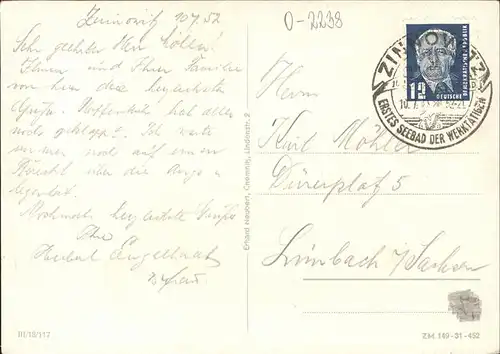 Zinnowitz 10.7.52
O-2238
Sehr geehrter Herr Möller!
Ihnen und Ihrer Familie
von hier die herzlichsten
Grüße. Hoffentlich hat alles
noch geklappt. Ich warte
immer noch auf einen
Bericht über die
Nochmals herzlichste Grüße
Ihr
u. Frau
III/18/117
Erhard Neubert, Chemnitz, Lindenstr. 2
ZINNOWITZ
10.7.52
ERSTES SEEBAD DER WERKTÄTIGEN
12
DEUTSCHE
DEMOKRATISCHE REPUBLIK
Herrn
Kurt Möhler
Dürerplatz 5
Limbach /Sachsen
ZM. 149-31-452